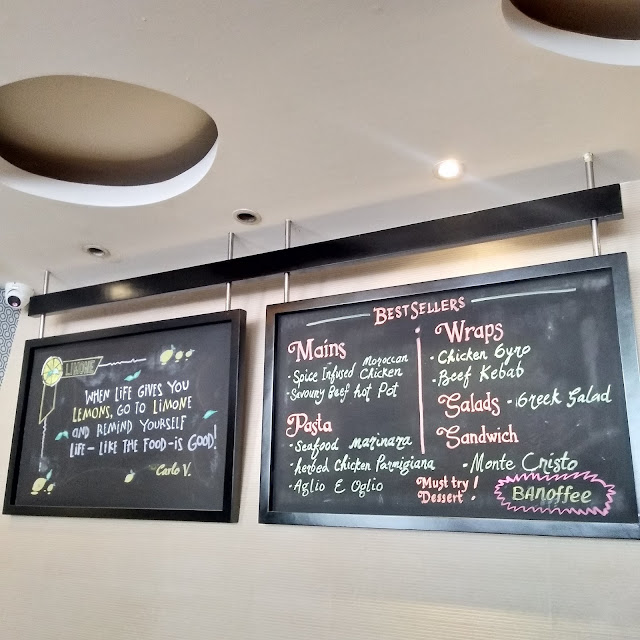 LIMONE
WHEN LIFE GIVES YOU
LEMONS, GO TO LIMONE
AND REMIND YOURSELF
LIFE - LIKE THE FOOD - IS GOOD!
Carlo V.
BESTSELLERS
Mains
- Spice Infused Moroccan Chicken
- Savoury Beef Hot Pot
Pasta
- Seafood Marinara
- herbed Chicken Parmigiana
- Aglio E Oglio
Wraps
- Chicken Gyro
- Beef Kebab
Salads - Greek Salad
Sandwich
- Monte Cristo
Must try!
Dessert.
BANOFFEE